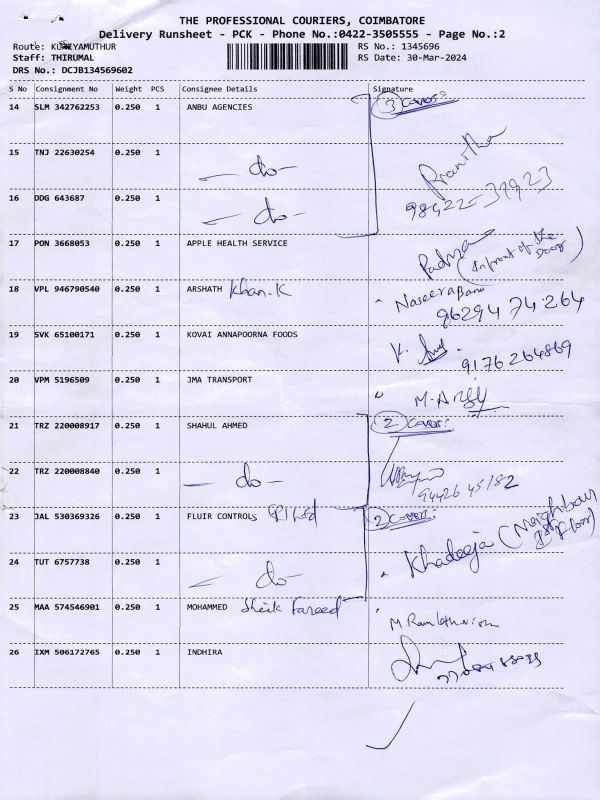 THE PROFESSIONAL COURIERS, COIMBATORE
Delivery Runsheet - PCK - Phone No.:0422-3505555 - Page No.:2
Route: KUNIYAMUTHUR
RS No.: 1345696
Staff: THIRUMAL
RS Date: 30-Mar-2024
DRS No.: DCJB134569602
S No Consignment No Weight PCS Consignee Details Signature
14 SLM 342762253 0.250 1 ANBU AGENCIES 3 Covers
15 TNJ 22630254 0.250 1 -do- Pranitha
16 DDG 643687 0.250 1 -do- 98422-37923
17 PON 3668053 0.250 1 APPLE HEALTH SERVICE Padma (Infront of the Door)
18 VPL 946790540 0.250 1 ARSHATH Khan.K Naseera Banu
96294 74264
19 SVK 65100171 0.250 1 KOVAI ANNAPOORNA FOODS K. 9176264869
20 VPM 5196509 0.250 1 JMA TRANSPORT M.
21 TRZ 220008917 0.250 1 SHAHUL AHMED 2 Covers
22 TRZ 220008840 0.250 1 -do- 94426 45182
23 JAL 530369326 0.250 1 FLUIR CONTROLS P Ltd 2 Covers
24 TUT 6757738 0.250 1 -do- Khadeeja (Neighbour Floor)
25 MAA 574546901 0.250 1 MOHAMMED Sheik Fareed M
26 IXM 506172765 0.250 1 INDHIRA